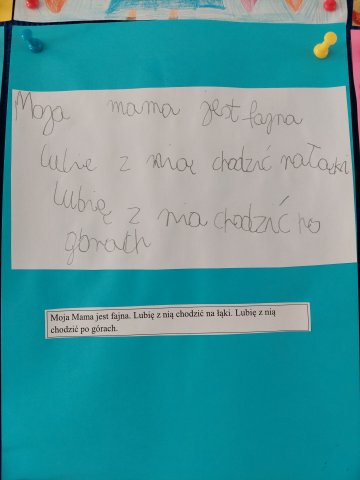 Moja mama jest fajna
Lubię z nią chodzić na łąki
Lubię z nia chodzić po
górach
Moja Mama jest fajna. Lubię z nią chodzić na łąki. Lubię z nią
chodzić po górach.